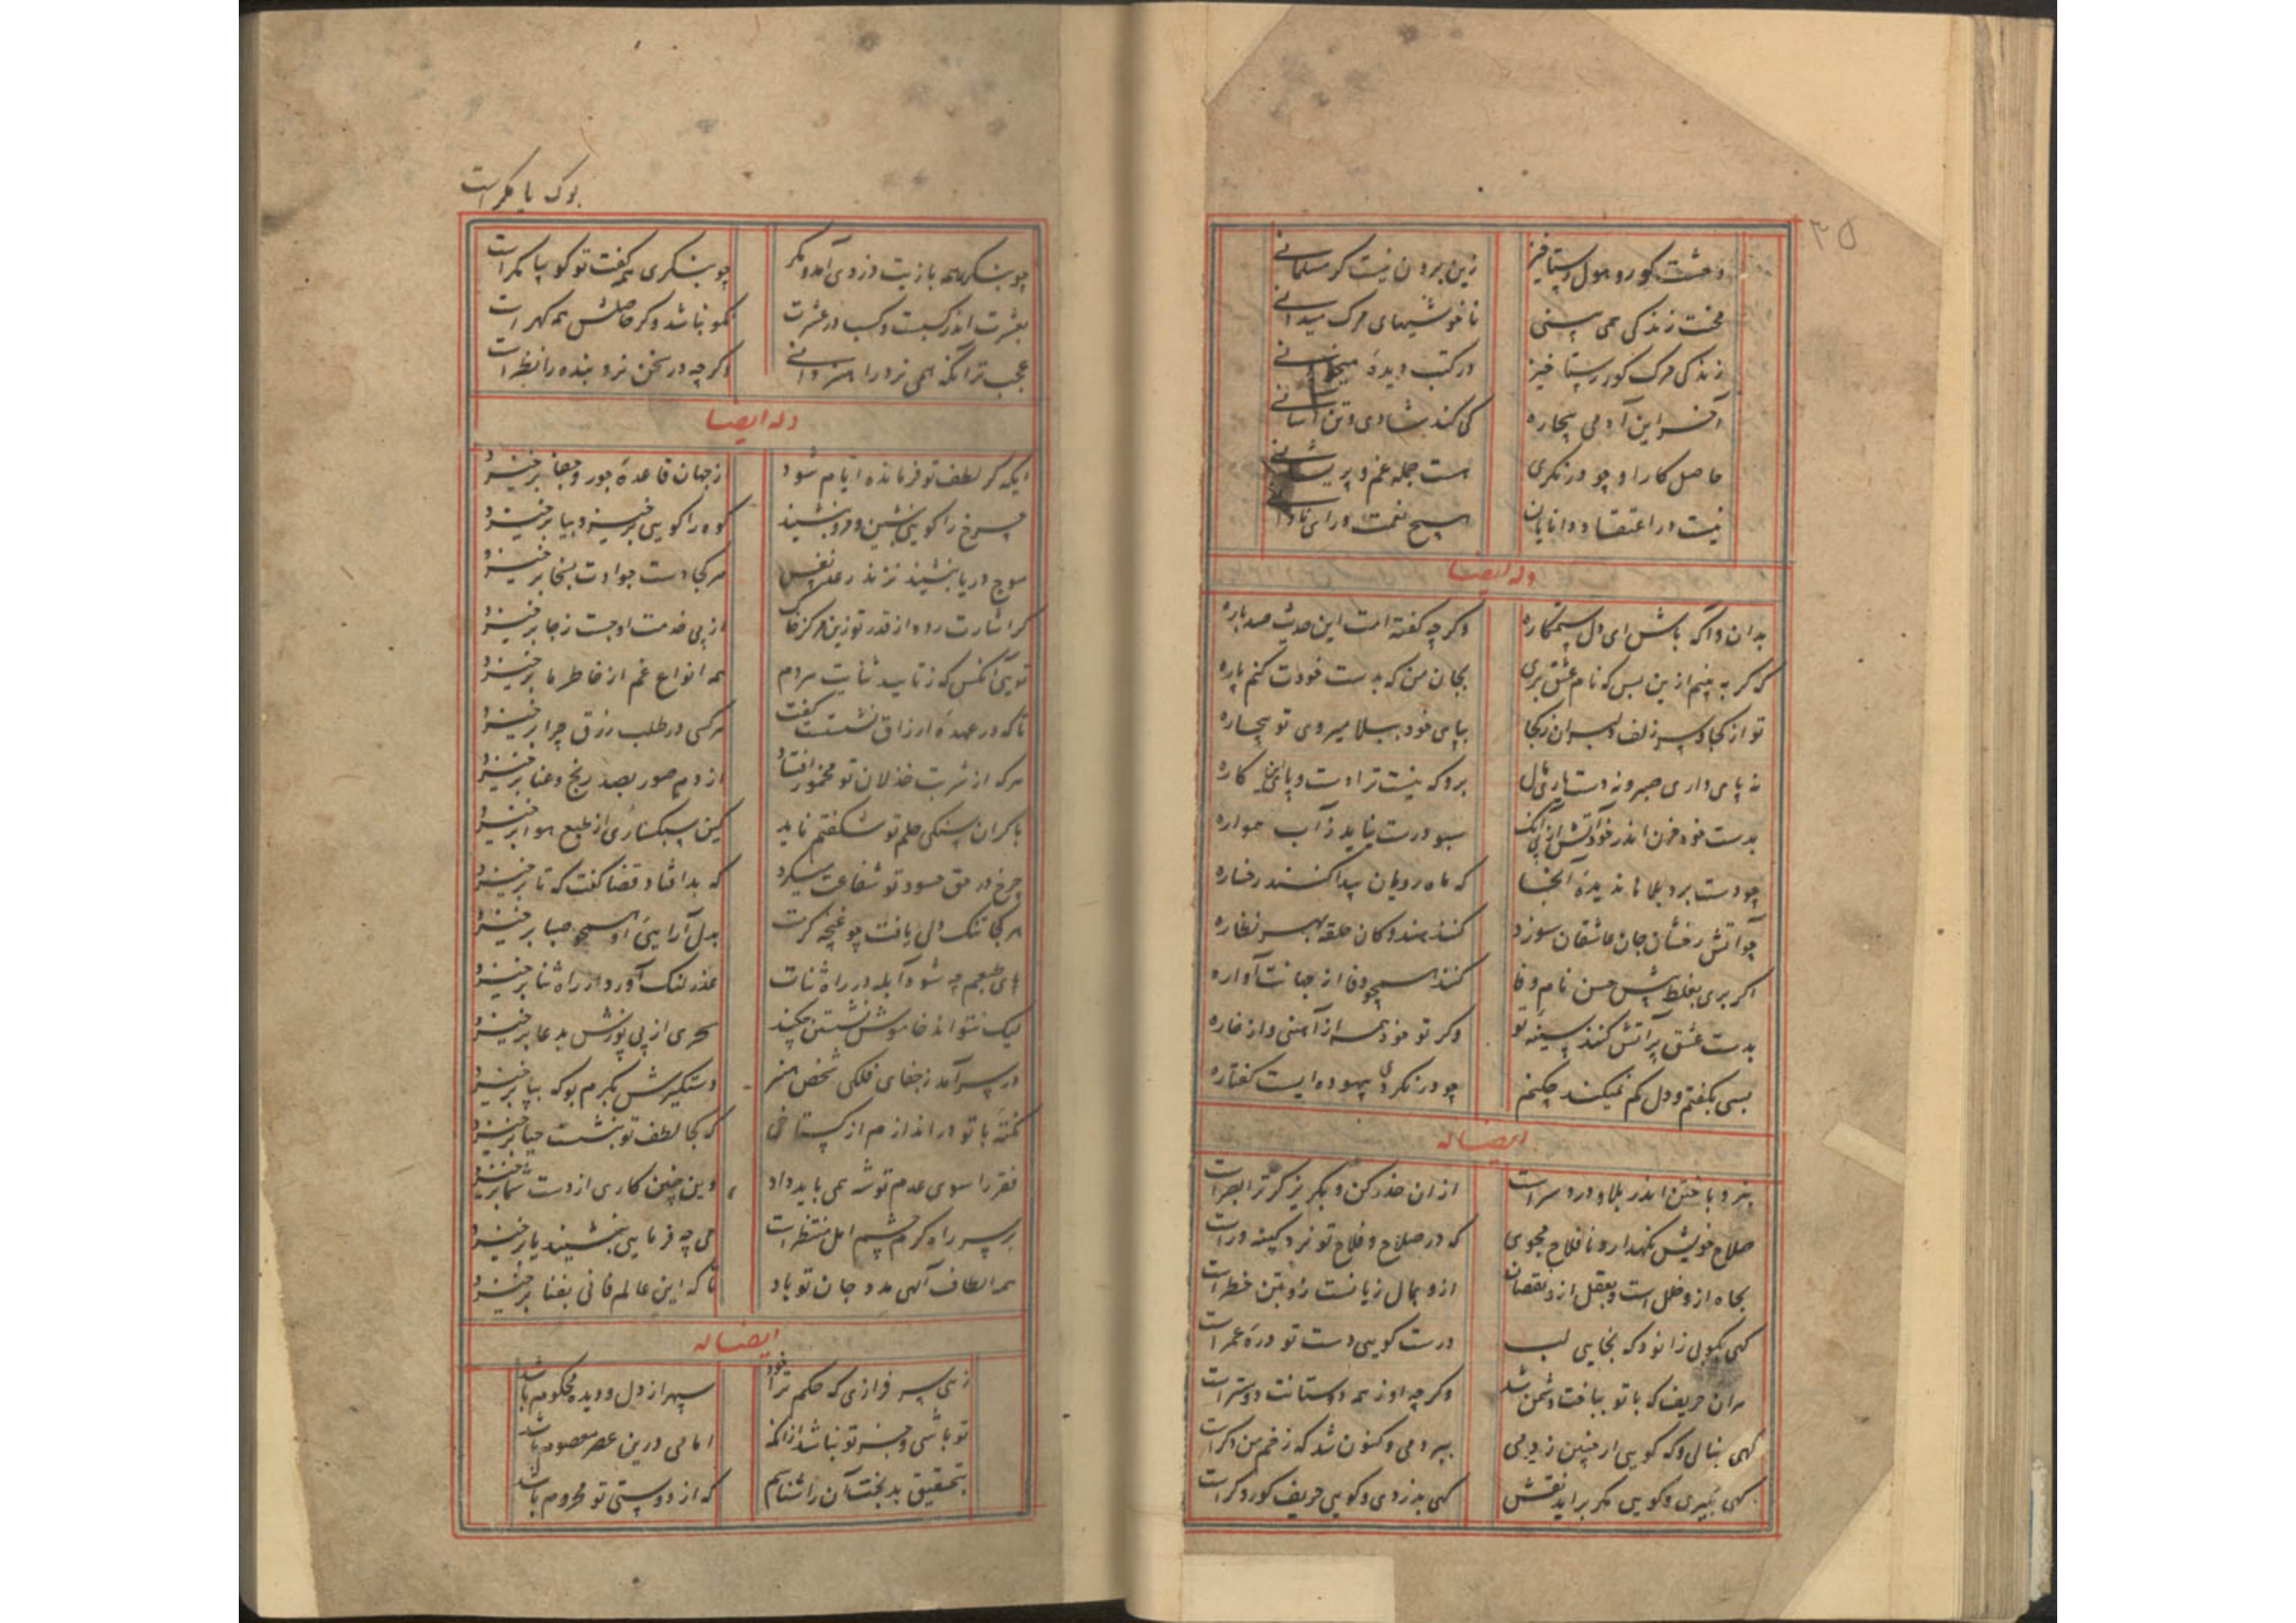 ۳۵
وحشت گور و هول رستاخیز زین برون نیست گر مسلمانی
محنت زندگی همی بینی ناخوشیهای مرگ میدانی
زندگی مرگ گور رستاخیز در کتب دیدهٔ میخوانی
آخر این آدمی بیچاره کی کند شادی و تن آسانی
حاصل کار او چو درنگری هست جمله غم و پریشانی
نیست در اعتقاد دانایان هیچ نعمت ورای نادانی
وله ایضا
بدان و آگه باش ای دل ستمکاره وگرچه گفته‌امت این حدیث صدباره
که گر به بینم ازین پس که نام عشق بری بجان من که بدست خودت کنم پاره
تو از کجا و سر زلف دلبران ز کجا بپای خود ببلا میروی تو بیچاره
نه پای داری صبر و نه دستیاری مال برو که نیست ترا دست و پای این کاره
بدست خود مزن اندر خود آتش از پی آنک سبو درست نیاید ز آب همواره
چو دست برد بلاها ندیدهٔ آنجا که ماه رویان پیدا کنند رخساره
چو آتش رخشان جان عاشقان سوزد کنند هندوکان حلقه بهر نظاره
اگر بری بغلط پیش حسن نام وفا کنند همچو وفا از جهانت آواره
بدست عشق پر آتش کنند سینه تو وگر تو خود همه از آهنی و از خاره
بسی بگفتم و دل کم نمیکند چکنم چو درنگری بیهوده ایست گفتاره
ایضا له
بنرد باختن اندر بلا و درد سرست از آن حذر کن و بگریز گر ترا بصرست
صلاح خویش نگهدار و نافلاح مجوی که در صلاح و فلاح تو نرد کینه ورست
بجاه ازو خلل است و بعقل ازو نقصان ازو بمال زیانست زو بتن خطرست
گهی بکوبی زانو و گه بخایی لب درست گویی دست تو درهٔ عمرست
هر آن حریف که با تو بباخت دشمن شد وگرچه او ز همه دوستانت دوسترست
گهی بنالی و گه گویی ار چنین زدمی ببردمی و کنون شد که زخم من دگرست
گهی بگیری و گویی مگر برآید نقش گهی بدزدی و گویی حریف کور و کرست
بوک یا مگرست
چو بنگری همه بازیت دزدی آمد و مگر چو بنگری همه گفت تو گو یا مگرست
بعشرت اندر کسبت و کسب در عشرت نکو نباشد وگر حاصلش همه گهرست
عجب‌تر آنکه همی نرد را هنر دانی وگرچه در سخن نرد بنده را نظرست
وله ایضا
ایکه گر لطف تو فرمانده ایام شود ز جهان قاعدهٔ جور و جفا برخیزد
چرخ را گویی بنشین و فرو بنشیند کوه را گویی برخیز و بیا برخیزد
موج دریا بنشیند نزند در علم نفس هر کجا دست جوادت بسخا برخیزد
گر اشارت رود از قدر تو زین مرکز خاک از پی خدمت او جست ز جا برخیزد
تویی آنکس که ز تأیید ثنایت مردم همه انواع غم از خاطر ما برخیزد
تا که در عهدهٔ ارزاق نشستت کفت هر کسی در طلب رزق چرا برخیزد
هر که از شربت خذلان تو مخمور افتاد از دم صور بصد رنج و عنا برخیزد
با گران سنگی حلم تو شگفتم ناید کین سبکساری از طبع هوا برخیزد
چرخ در حق حسود تو شفاعت میکرد که بد افتاد قضا گفت که تا برخیزد
هر کجا تنگ دلی یافت چو غنچه کرمت بدل آرایی او همچو صبا برخیزد
پای طبعم چه شود آبله در راه ثنات عذر لنگ آورد از راه ثنا برخیزد
لیک نتواند خاموش نشستن چکند سحری از پی پوزش بدعا برخیزد
در سر آمد ز جفای فلکی شخص هنر دستگیرش بکرم بوکه بپا برخیزد
نکتهٔ با تو دراندازم از گستاخی که کجا لطف تو بنشست حیا برخیزد
فقر را سوی عدم توشه همی باید داد وین چنین کاری از دست شما برخیزد
بر سر راه کرم چشم امل منتظرست می چه فرمایی بنشیند یا برخیزد
همه الطاف الهی مدد جان تو باد تا که این عالم فانی بفنا برخیزد
ایضا له
زهی سرفرازی که حکم ترا خود سپهر از دل و دیده محکوم باشد
تو باشی و جز تو نباشد از آنکه امامی درین عصر معصوم باشد
بتحقیق بدبخت آن را شناسم که از دوستی تو محروم باشد